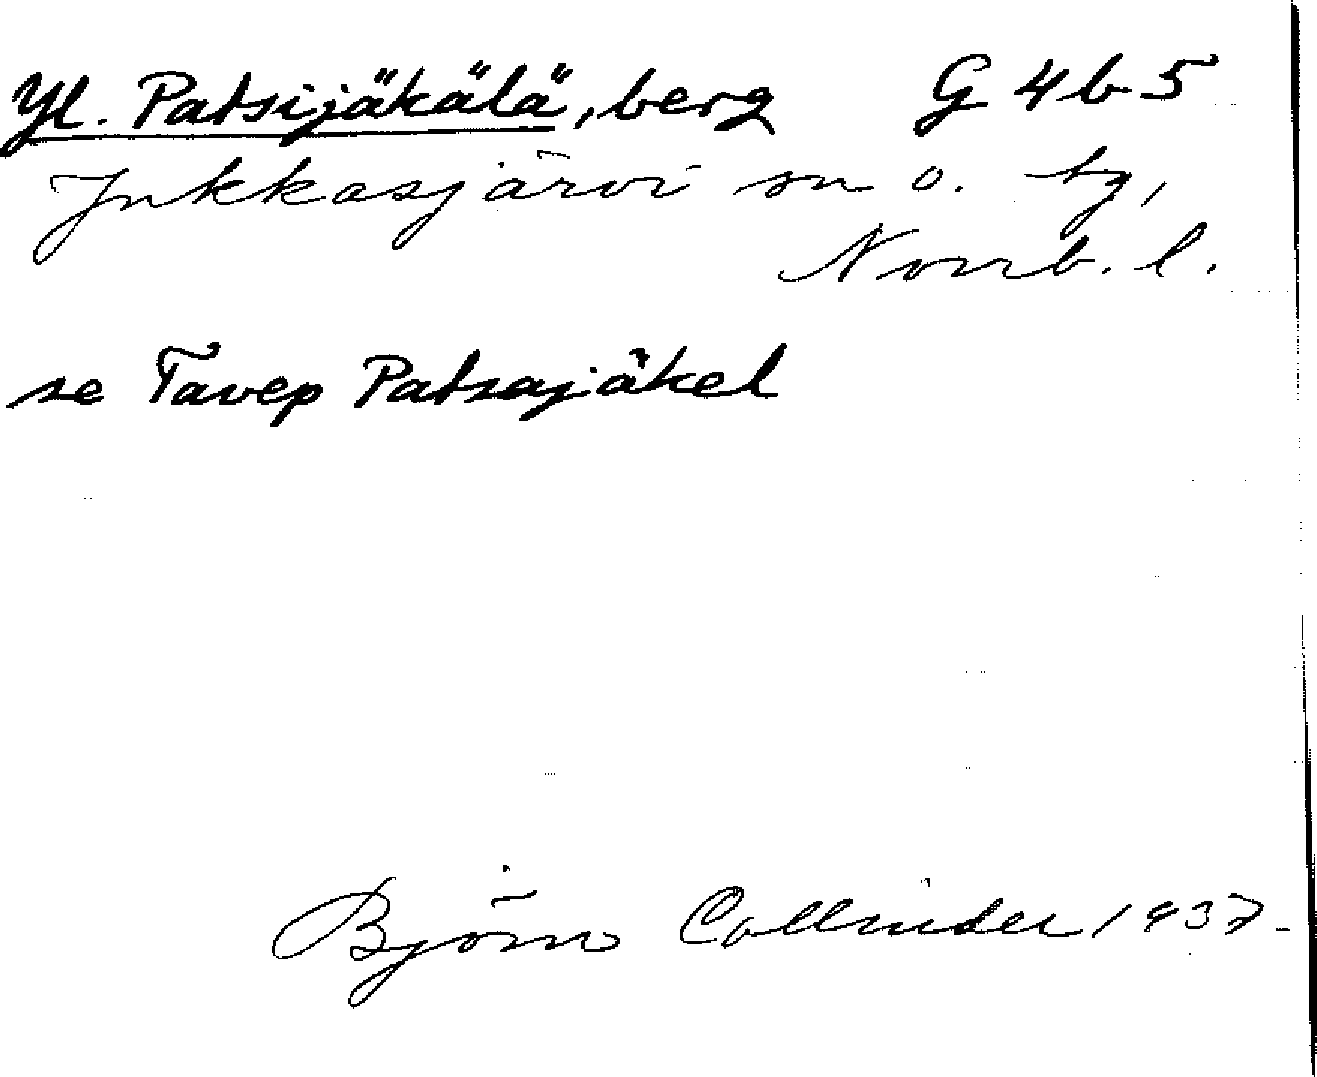 Yl. Patsijäkälä, berg G 4 b 5
Jukkasjärvi sn o. tg,
Norrb. l.
se Tavep Patsajåkel
Björn Collinder 1937